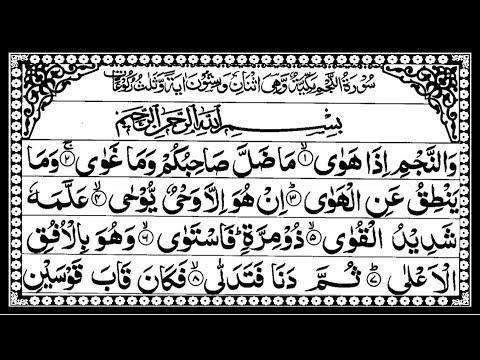 سُوْرَةُ النَّجْمِ مَكِّيَّةٌ وَّهِيَ اثْنَتَانِ وَسِتُّوْنَ اٰيَةً وَّثَلٰثُ رُكُوْعَاتٍ
بِسْمِ اللّٰهِ الرَّحْمٰنِ الرَّحِيْمِ
وَالنَّجْمِ اِذَا هَوٰى ۙ﴿۱﴾ مَا ضَلَّ صَاحِبُكُمْ وَمَا غَوٰى ۚ﴿۲﴾ وَمَا
يَنْطِقُ عَنِ الْهَوٰى ﴿۳﴾ اِنْ هُوَ اِلَّا وَحْيٌ يُّوْحٰى ۙ﴿۴﴾ عَلَّمَهٗ
شَدِيْدُ الْقُوٰى ۙ﴿۵﴾ ذُوْ مِرَّةٍ ؕ فَاسْتَوٰى ۙ﴿۶﴾ وَهُوَ بِالْاُفُقِ
الْاَعْلٰى ؕ﴿۷﴾ ثُمَّ دَنَا فَتَدَلّٰى ۙ﴿۸﴾ فَكَانَ قَابَ قَوْسَيْنِ